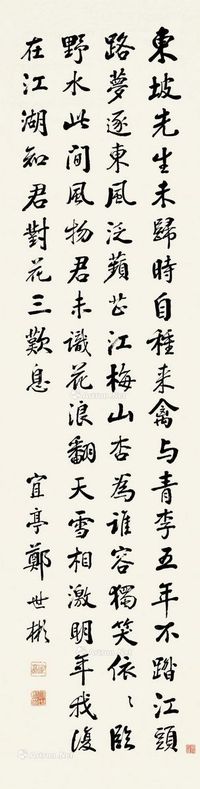 東坡先生未歸時自種来禽与青李五年不踏江頭
路夢逐東風泛蘋芷江梅山杏為誰容獨笑依〻臨
野水此間風物君未識花浪翻天雪相激明年我復
在江湖知君對花三歎息
宜亭鄭世彬